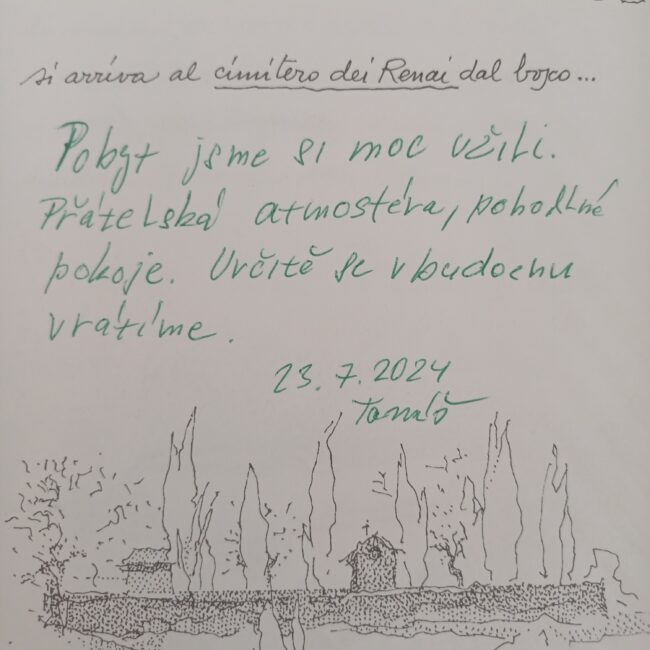 si arriva al cimitero dei Renai dal bosco...
Pobyt jsme si moc užili.
Přátelská atmosféra, pohodlné
pokoje. Určitě se v budocnu
vrátíme.
23.7.2024
Tomáš